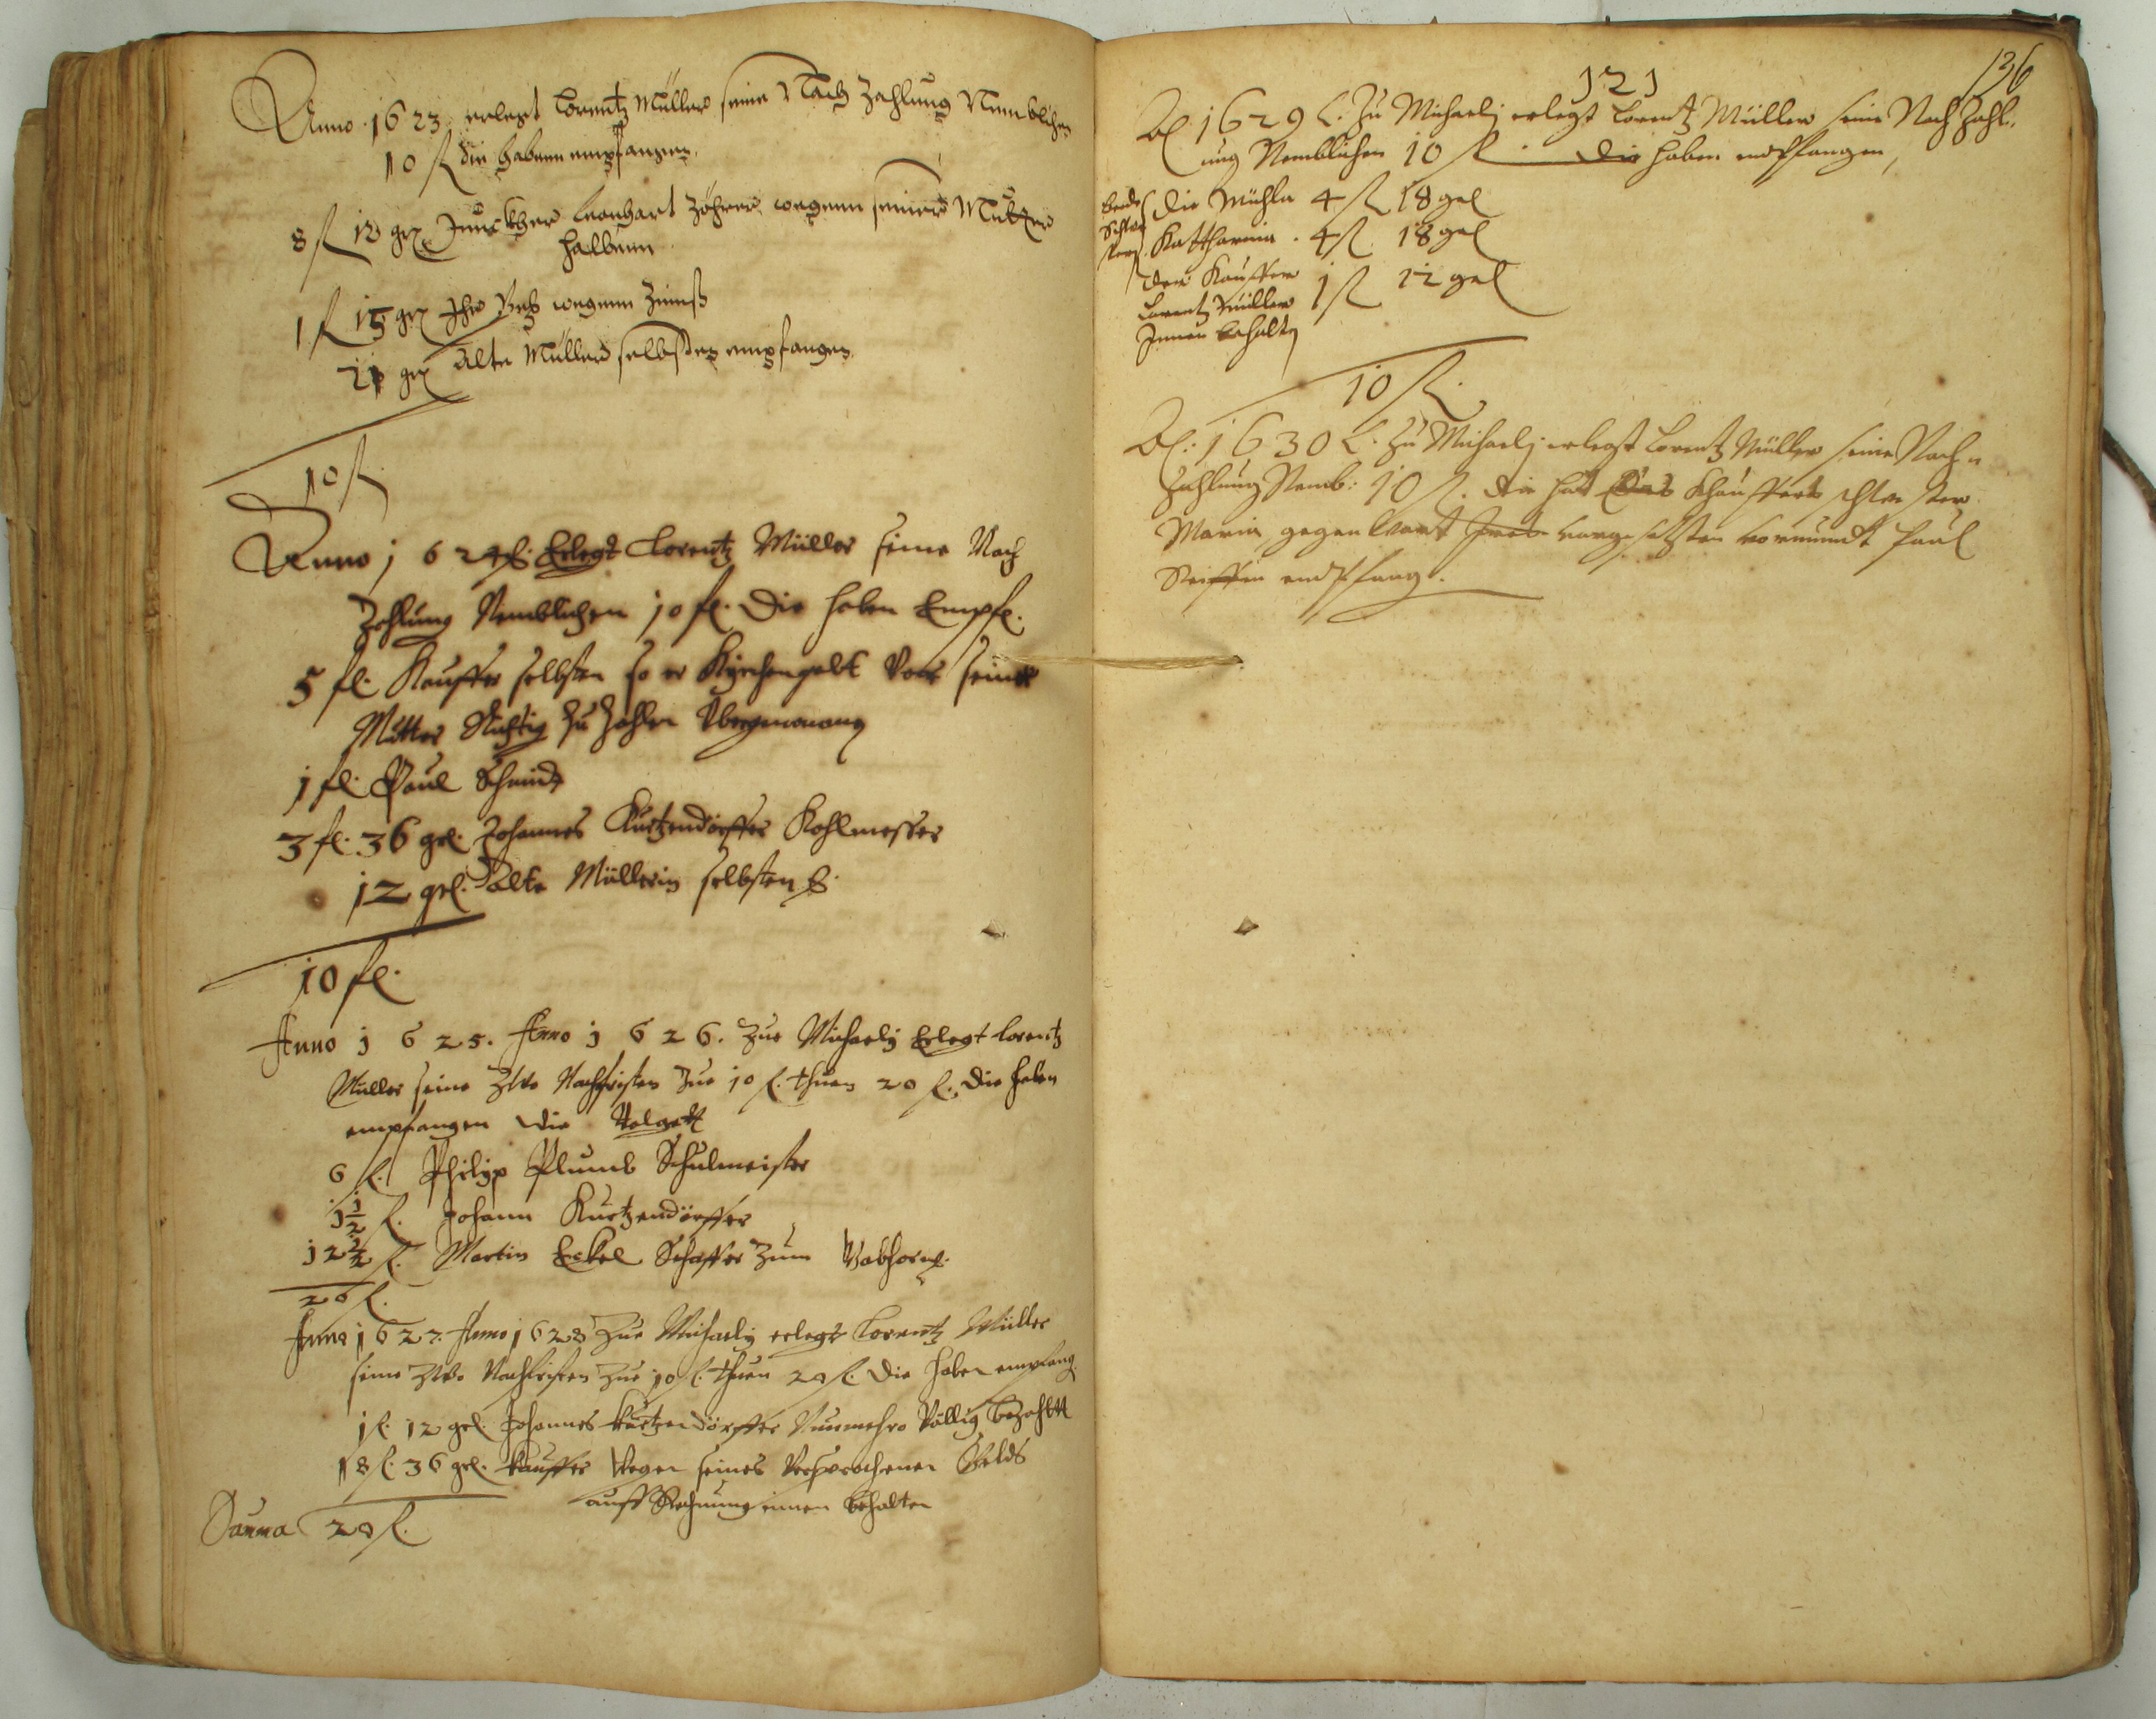 Anno 1623 erlegt Lorentz Müller seine Nach Zahlung Nemblichen
10 fl die habenn empfangen.
8 fl 12 grl Leonhart wegenn seiner Mutter
halbenn
1 fl 15 grl wegenn Zinnß
21 grl Alte Müller selbsten empfangen
10 fl
Anno 1624 fl. Erlegt Lorentz Müller seine Nach
Zahlung Nemblichen 10 fl. Die haben Empf.
5 fl. Kauffer selbsten so er Kirchengelt Vor seine
Mutter Richtig Zu Zahlen
1 fl. Paul Schmidt
3 fl. 36 grl. Johannes Kurtzendörffer Kohlmesser
12 grl. alte Müllerin selbsten
10 fl.
Anno 1625. Anno 1626. Zue Michaely Erlegt Lorentz
Müller seine Zwo Nachfristen Zue 10 fl. thuen 20 fl. Die haben
empfangen die
6 fl. Philip Plumb Schulmeister
1 1/2 fl. Johann Kurtzendörffer
12 1/2 fl. Martin Eckel Schaffer Zum
20 fl.
Anno 1627. Anno 1628 Zue Michaely erlegt Lorentz Müller
seine Zwo Nachfristen Zue 10 fl. thuen 20 fl. Die haben empfang.
1 fl. 12 grl. Johannes Kurtzendörffer Nunmehro Völlig bezahlt
18 fl. 36 grl. Kauffer Wegen seines Versprochenen Gelds
auff Rechnung innen behalten
Summa 20 fl.
121
136
Ao 1629 L. Zu Michaelj erlegt Lorentz Müller seine Nach Zahl.
ung Nemblichen 10 fl. die haben endtpfangen,
beede die Mühle 4 fl 18 grl
Schwe
stern Kattharina. 4 fl. 18 grl
der Kauffer
Lorentz Müller 1 fl 12 grl
Innen behalten
10 fl.
Ao: 1630 L. Zu Michaelj erlegt Lorentz Müller seine Nach
Zahlung Nemb: 10 fl. die hat des Khauffers schwester
Maria, gegenwart vorgesetzten vormundt Paul
endtpfang.